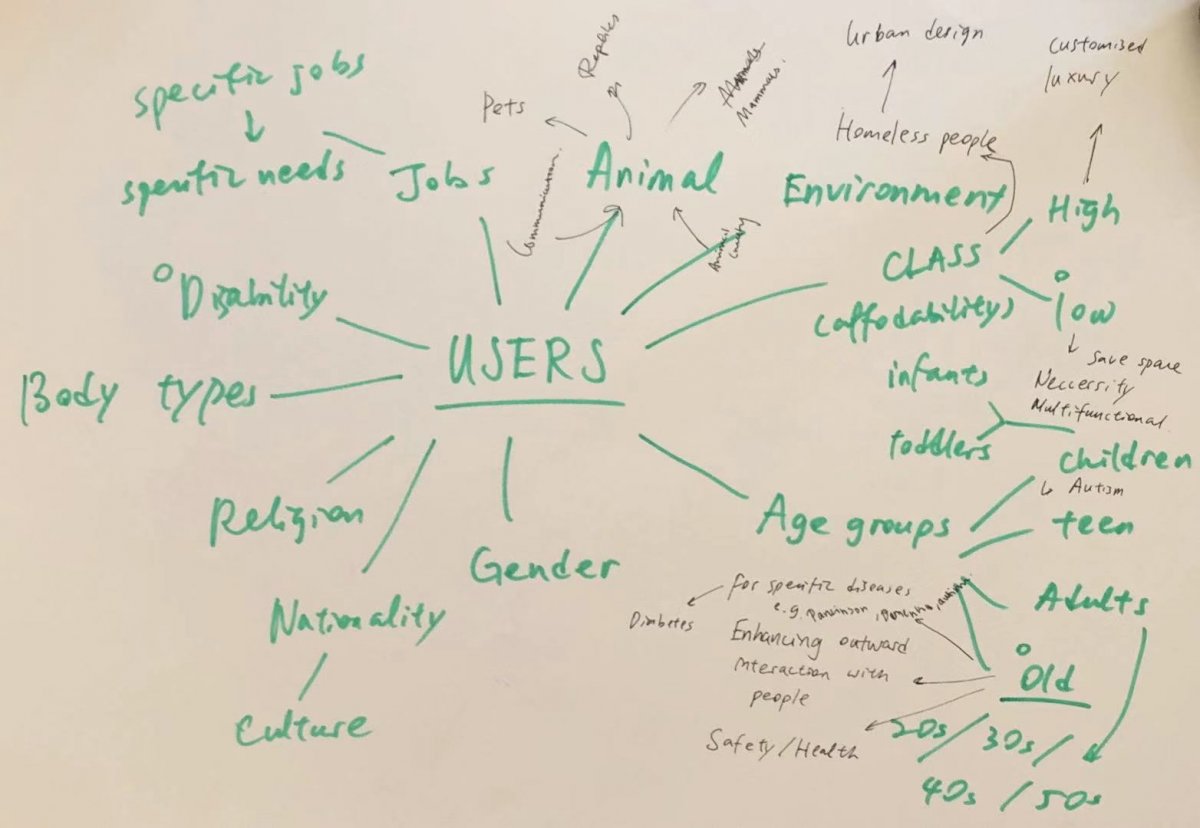 specific jobs
specific needs
Jobs
Pets
Reptiles
Mammals.
Communication.
Animal
Animal
Urban design
Homeless people
Environment
Customised
luxury
High
CLASS
(affodability)
low
save space
Neccersity
Multifunctional
Disability
USERS
Body types
infants
toddlers
children
Autism
Religion
Gender
Age groups
teen
Nationality
Culture
For specific diseases
e.g. Parkinson, Dementia, autism.
Diabetes
Enhancing outward
interaction with
people
Safety/Health
Adults
Old
20s / 30s /
40s / 50s